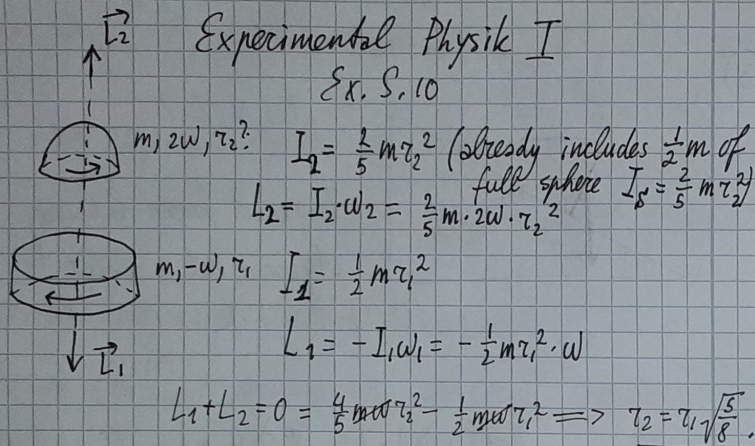 L⃗₂
Experimental Physik I
Ex. 5.10
m, 2ω, r₂?
I₂ = 2/5 mr₂² (already includes 1/2 m of
full sphere I_S = 2/5 mr₂²)
L₂ = I₂·ω₂ = 2/5 m·2ω·r₂²
m, -ω, r₁
I₁ = 1/2 mr₁²
L₁ = -I₁ω₁ = -1/2 mr₁²·ω
L⃗₁
L₁+L₂ = 0 = 4/5 mωr₂² - 1/2 mωr₁² ⟹ r₂ = r₁√(5/8)